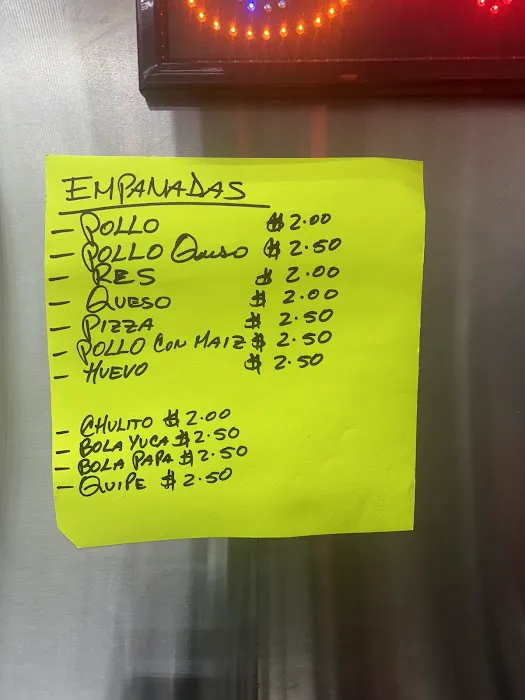 EMPANADAS
- POLLO $ 2.00
- POLLO QUESO $ 2.50
- RES $ 2.00
- QUESO $ 2.00
- PIZZA $ 2.50
- POLLO CON MAIZ $ 2.50
- HUEVO $ 2.50
- CHULITO $ 2.00
- BOLA YUCA $ 2.50
- BOLA PAPA $ 2.50
- QUIPE $ 2.50